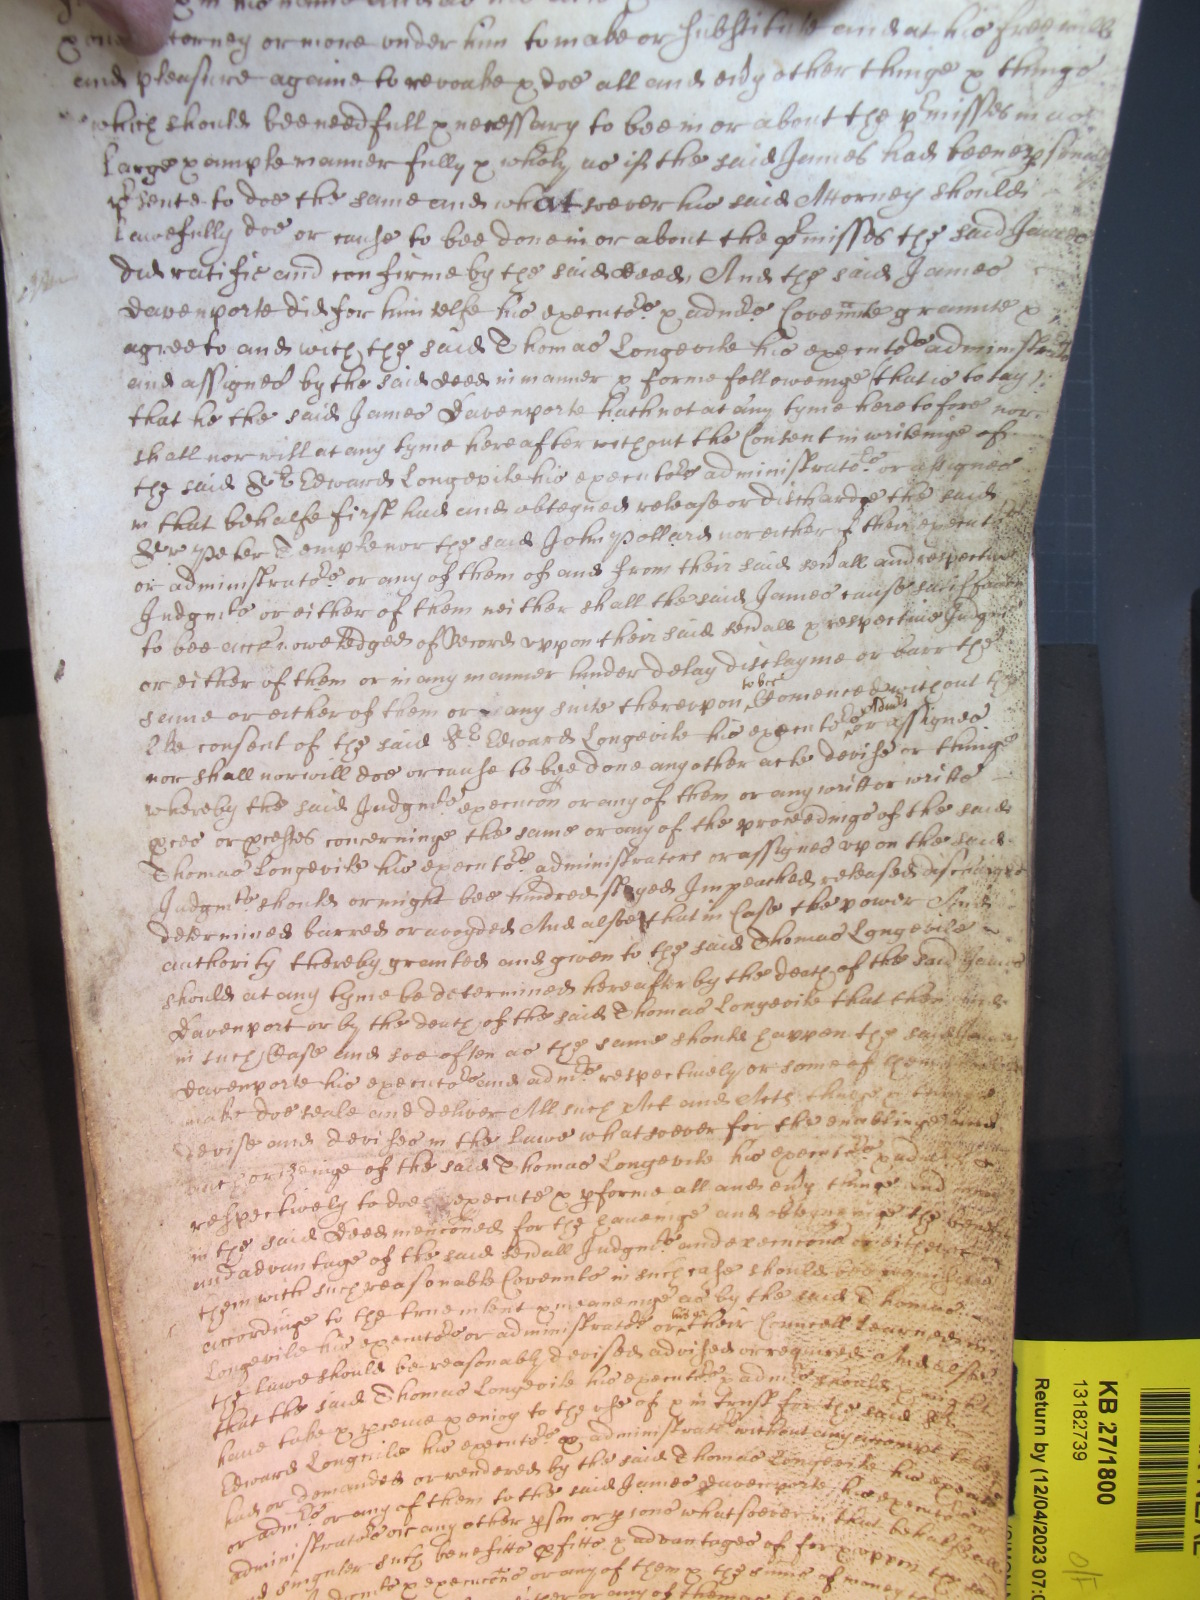 one Attorney or more under him to make or substitute and at his free will
and pleasure againe to revoake & doe all and evy other thinge & things
which should bee needfull & necessary to bee in or about the pmisses in as
Large & ample manner fully & wholy as if the said James had beene psonally
psente to doe the same and whatsoever his said Attorney should
Lawefully doe or cause to bee done in or about the pmisses the said James
did ratifie and confirme by the said deed, And the said James
Davenporte did for him selfe his executors & admrs Covennte graunte &
agree to and with the said Thomas Longevile his executors administrators
and assignes by the said deed in manner & forme followeinge (that is to say)
that he the said James Davenporte hath not at any tyme heretofore nor
shall nor will at any tyme hereafter without the Consent in writeinge of
the said Sr Edward Longevile his executors administrators or assignes
in that behalfe first had and obteyned release or discharge the said
Sr Peter Temple nor the said John Pollard nor either of their executors
or administrators or any of them of and from their said sevall and respective
Judgmts or either of them neither shall the said James cause satisfaccon
to bee acknowledged of Record uppon their said sevall & respective Judgmts
or either of them or in any manner hinder delay disclayme or barr the
same or either of them or any suite thereupon to bee Comenced without the
like consent of the said Sr Edward Longevile his executors admrs or assignes
nor shall nor will doe or cause to bee done any other acte devise or thinge
whereby the said Judgmts execucon or any of them or any writt or writts
pces or pcesses concerninge the same or any of the proceedings of the said
Thomas Longevile his executors administrators or assignes upon the said
Judgmts should or might bee hindred stayed Impeached released discharged
determined barred or avoyded And alsoe that in Case the power And
authority thereby granted and given to the said Thomas Longevile
should at any tyme be determined hereafter by the death of the said James
Davenport or by the death of the said Thomas Longevile that then and
in such Case and soe often as the same should happen the said James
Davenporte his executors and admrs respectively or some of them
make doe seale and deliver All such Act and Acts thinge & things
devise and devises in the Lawe whatsoever for the enablinge and
authorizeinge of the said Thomas Longevile his executors & admrs
respectively to doe execute & pforme all and evy thinge and
in the said deed menconed for the haveinge and obteyneinge the benefit
and advantage of the said sevall Judgmts and execucons or either of
them with such reasonable Covennts in such case should bee
accordinge to the true intent & meaneinge as by the said Thomas
Longevile his executors or administrators or their Councell Learned in
the Lawe should be reasonably devised advised or required And alsoe
that the said Thomas Longevile his executors & admrs should
have take & pceive & enioy to the use of & in trust for the said Sr
Edward Longevile his executors & administrators without any accompt to be
had or demanded or rendered by the said Thomas Longevile his executors
or admrs or any of them to the said James Davenporte his executors or
administrators or any other pson or psons whatsoever in that behalfe all
and singuler such benefitts pfitts & advantages of for & uppon the said
Judgmts & execucons or any of them & the sums of money
either or any of them
KB 27/1800
13182739
Return by (12/04/2023 07:0